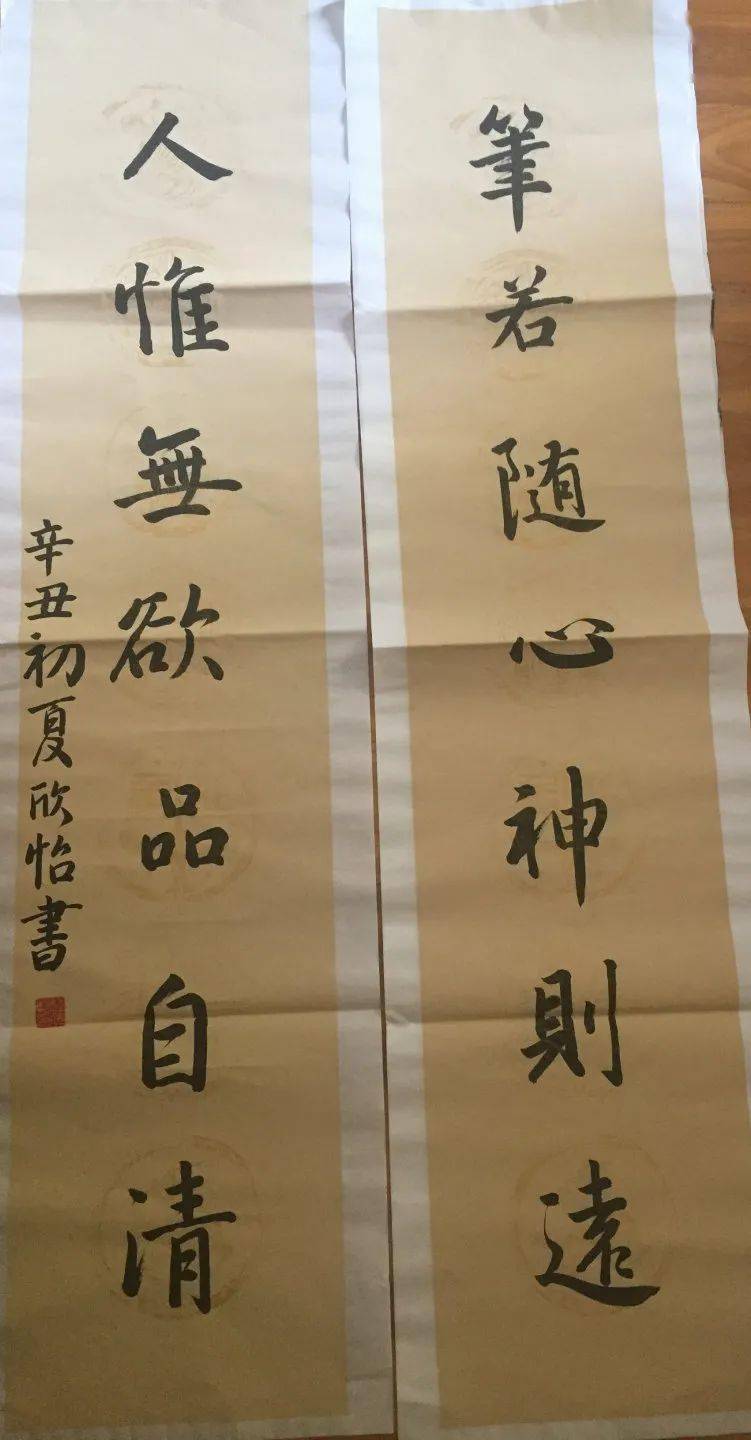 筆若随心神則遠
人惟無欲品自清
辛丑初夏欣怡書